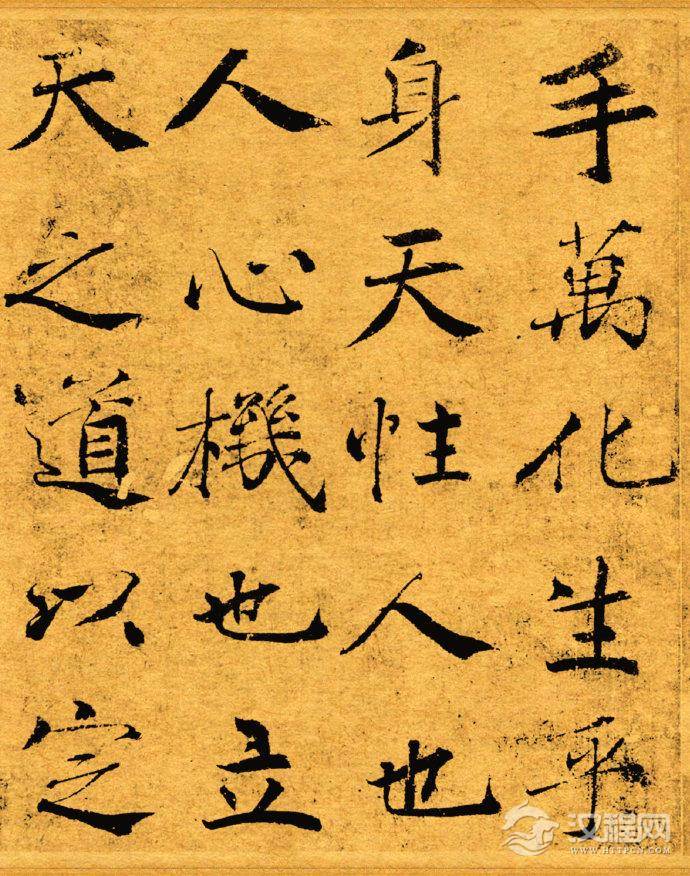 手萬化生乎
身天性人也
人心機也立
天之道以定
汉程网
WWW.HTTPCN.COM